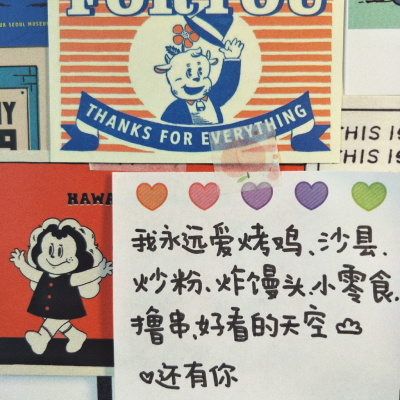 FOR YOU
THANKS FOR EVERYTHING
SEOUL MUSEUM
NY
THIS IS
THIS IS
HAWA
我永远爱烤鸡、沙县、
炒粉、炸馒头、小零食、
撸串、好看的天空
还有你